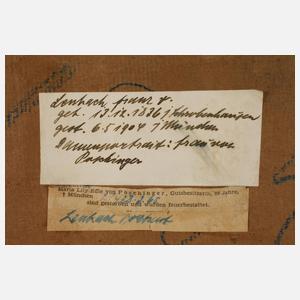 Lenbach, Franz v.
geb. 13.12.1836 i Schrobenhausen
gest. 6.5.1904 i München
Damenportrait: Frau von
Poschinger
Maria Lily Edle von Poschinger, Gutsbesitzerin, Jahre,
† München
sind gestorben und wurden feuerbestattet.
Lenbach Portrait